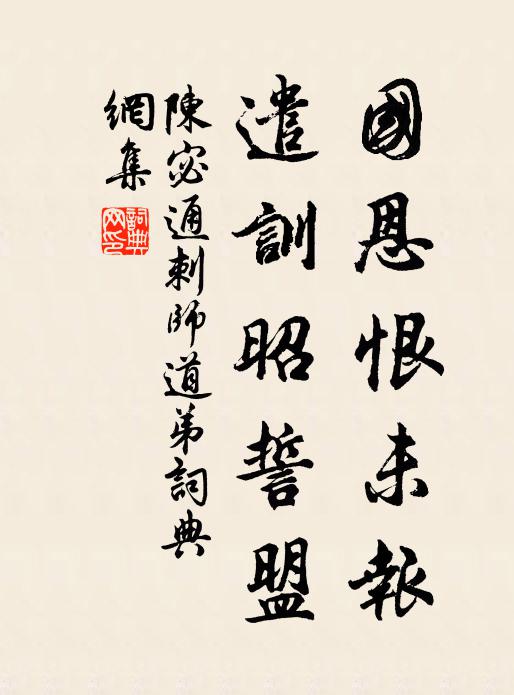 國恩恨未報
遣訓昭誓盟
陳宓通刺師道弟詞典
網集
詞典網印